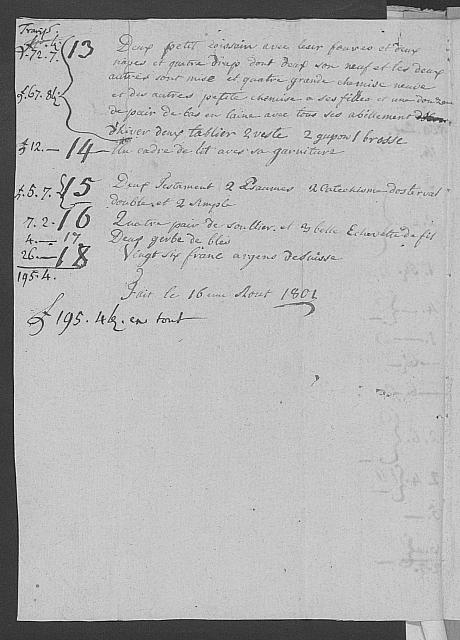 Transp.
f. 72. 7. 13 Deux petit coissin avec leur fourres et deux
napes et quatre Draps dont deux son neuf et les deux
autres sont mise et quatre grande chemise neuve
f. 67. 8 k. et des autres petite chemise a ses filles et une douzene
de pair de bas en laine avec tous ses abillement
d'hiver deux tablier 2 veste 2 gupon 1 brosse
f 12. — 14 — Un cadre de lit aves sa garniture
f. 5. 7. 15 Deux Testament 2 Psaumes 2 Catechisme dosterval
double et 2 simple
7. 2 - 16 Quatre pair de soullier. et 3 belle Echevette de fil
4. — 17 Deux gerbe de bles
26 — 18 Vingt six franc argens de Suisse
195. 4.
Fait le 16 me Aout 1801
f 195. 4 k. en tout